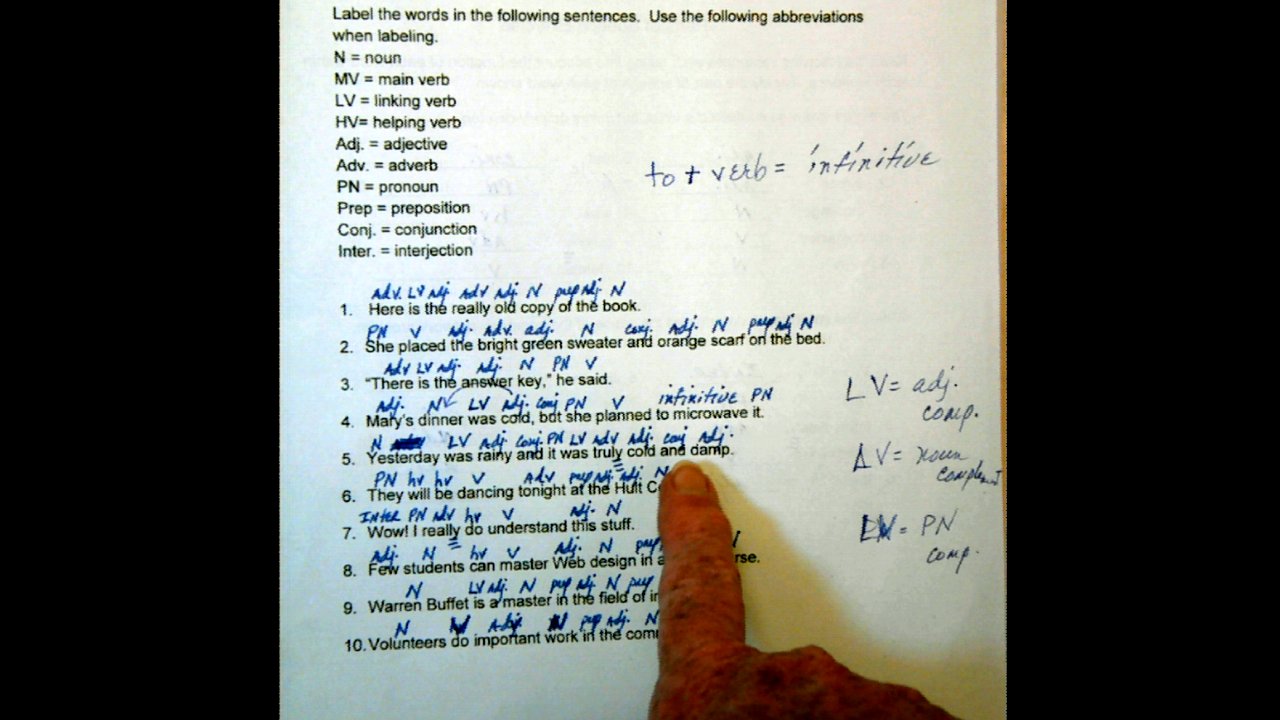 Label the words in the following sentences. Use the following abbreviations
when labeling.
N = noun
MV = main verb
LV = linking verb
HV= helping verb
Adj. = adjective
Adv. = adverb
PN = pronoun
Prep = preposition
Conj. = conjunction
Inter. = interjection
to + verb = infinitive
Adv. LV adj. Adv Adj. N prep Adj. N
1. Here is the really old copy of the book.
PN V Adj. Adv. adj. N conj. Adj. N prep Adj N
2. She placed the bright green sweater and orange scarf on the bed.
Adv LV adj. Adj. N PN V
3. "There is the answer key," he said.
Adj. N LV Adj. conj PN V infinitive PN
4. Mary's dinner was cold, but she planned to microwave it.
N LV Adj conj. PN LV Adv Adj. conj Adj.
5. Yesterday was rainy and it was truly cold and damp.
PN hv hv V Adv prep Adj Adj. N
6. They will be dancing tonight at the Hult
Inter PN Adv hv V Adj. N
7. Wow! I really do understand this stuff.
Adj. N hv V Adj. N prep
8. Few students can master Web design in a
N LV Adj. N prep adj N prep
9. Warren Buffet is a master in the field of
N prep Adj. N
10. Volunteers do important work in the
LV = adj.
comp.
= noun
complement
= PN
comp.